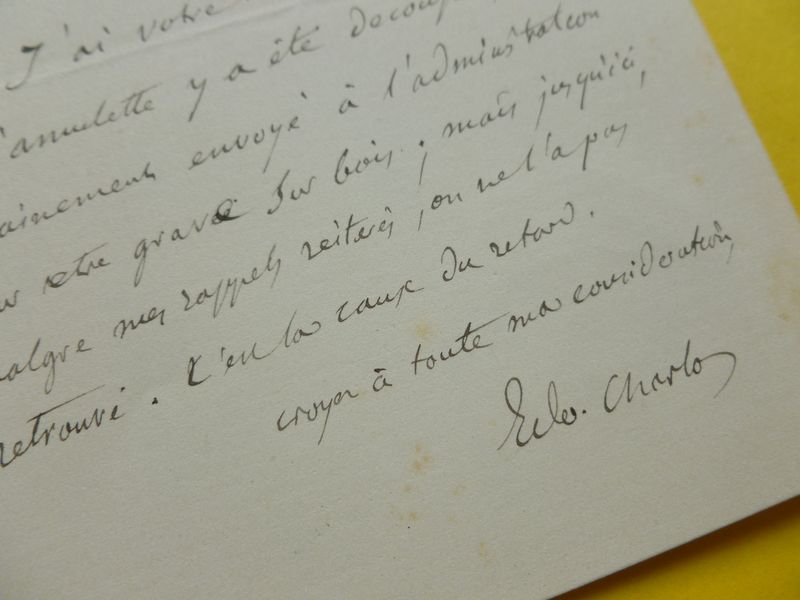 J'ai votre
amulette y a été découp
ainement envoyé à l'administration
etre gravé sur bois ; mais jusqu'ici,
algré mes rappels réitérés, on ne l'a pas
retrouvé. C'est la cause du retard.
croyez à toute ma considération,
Edo. Charton